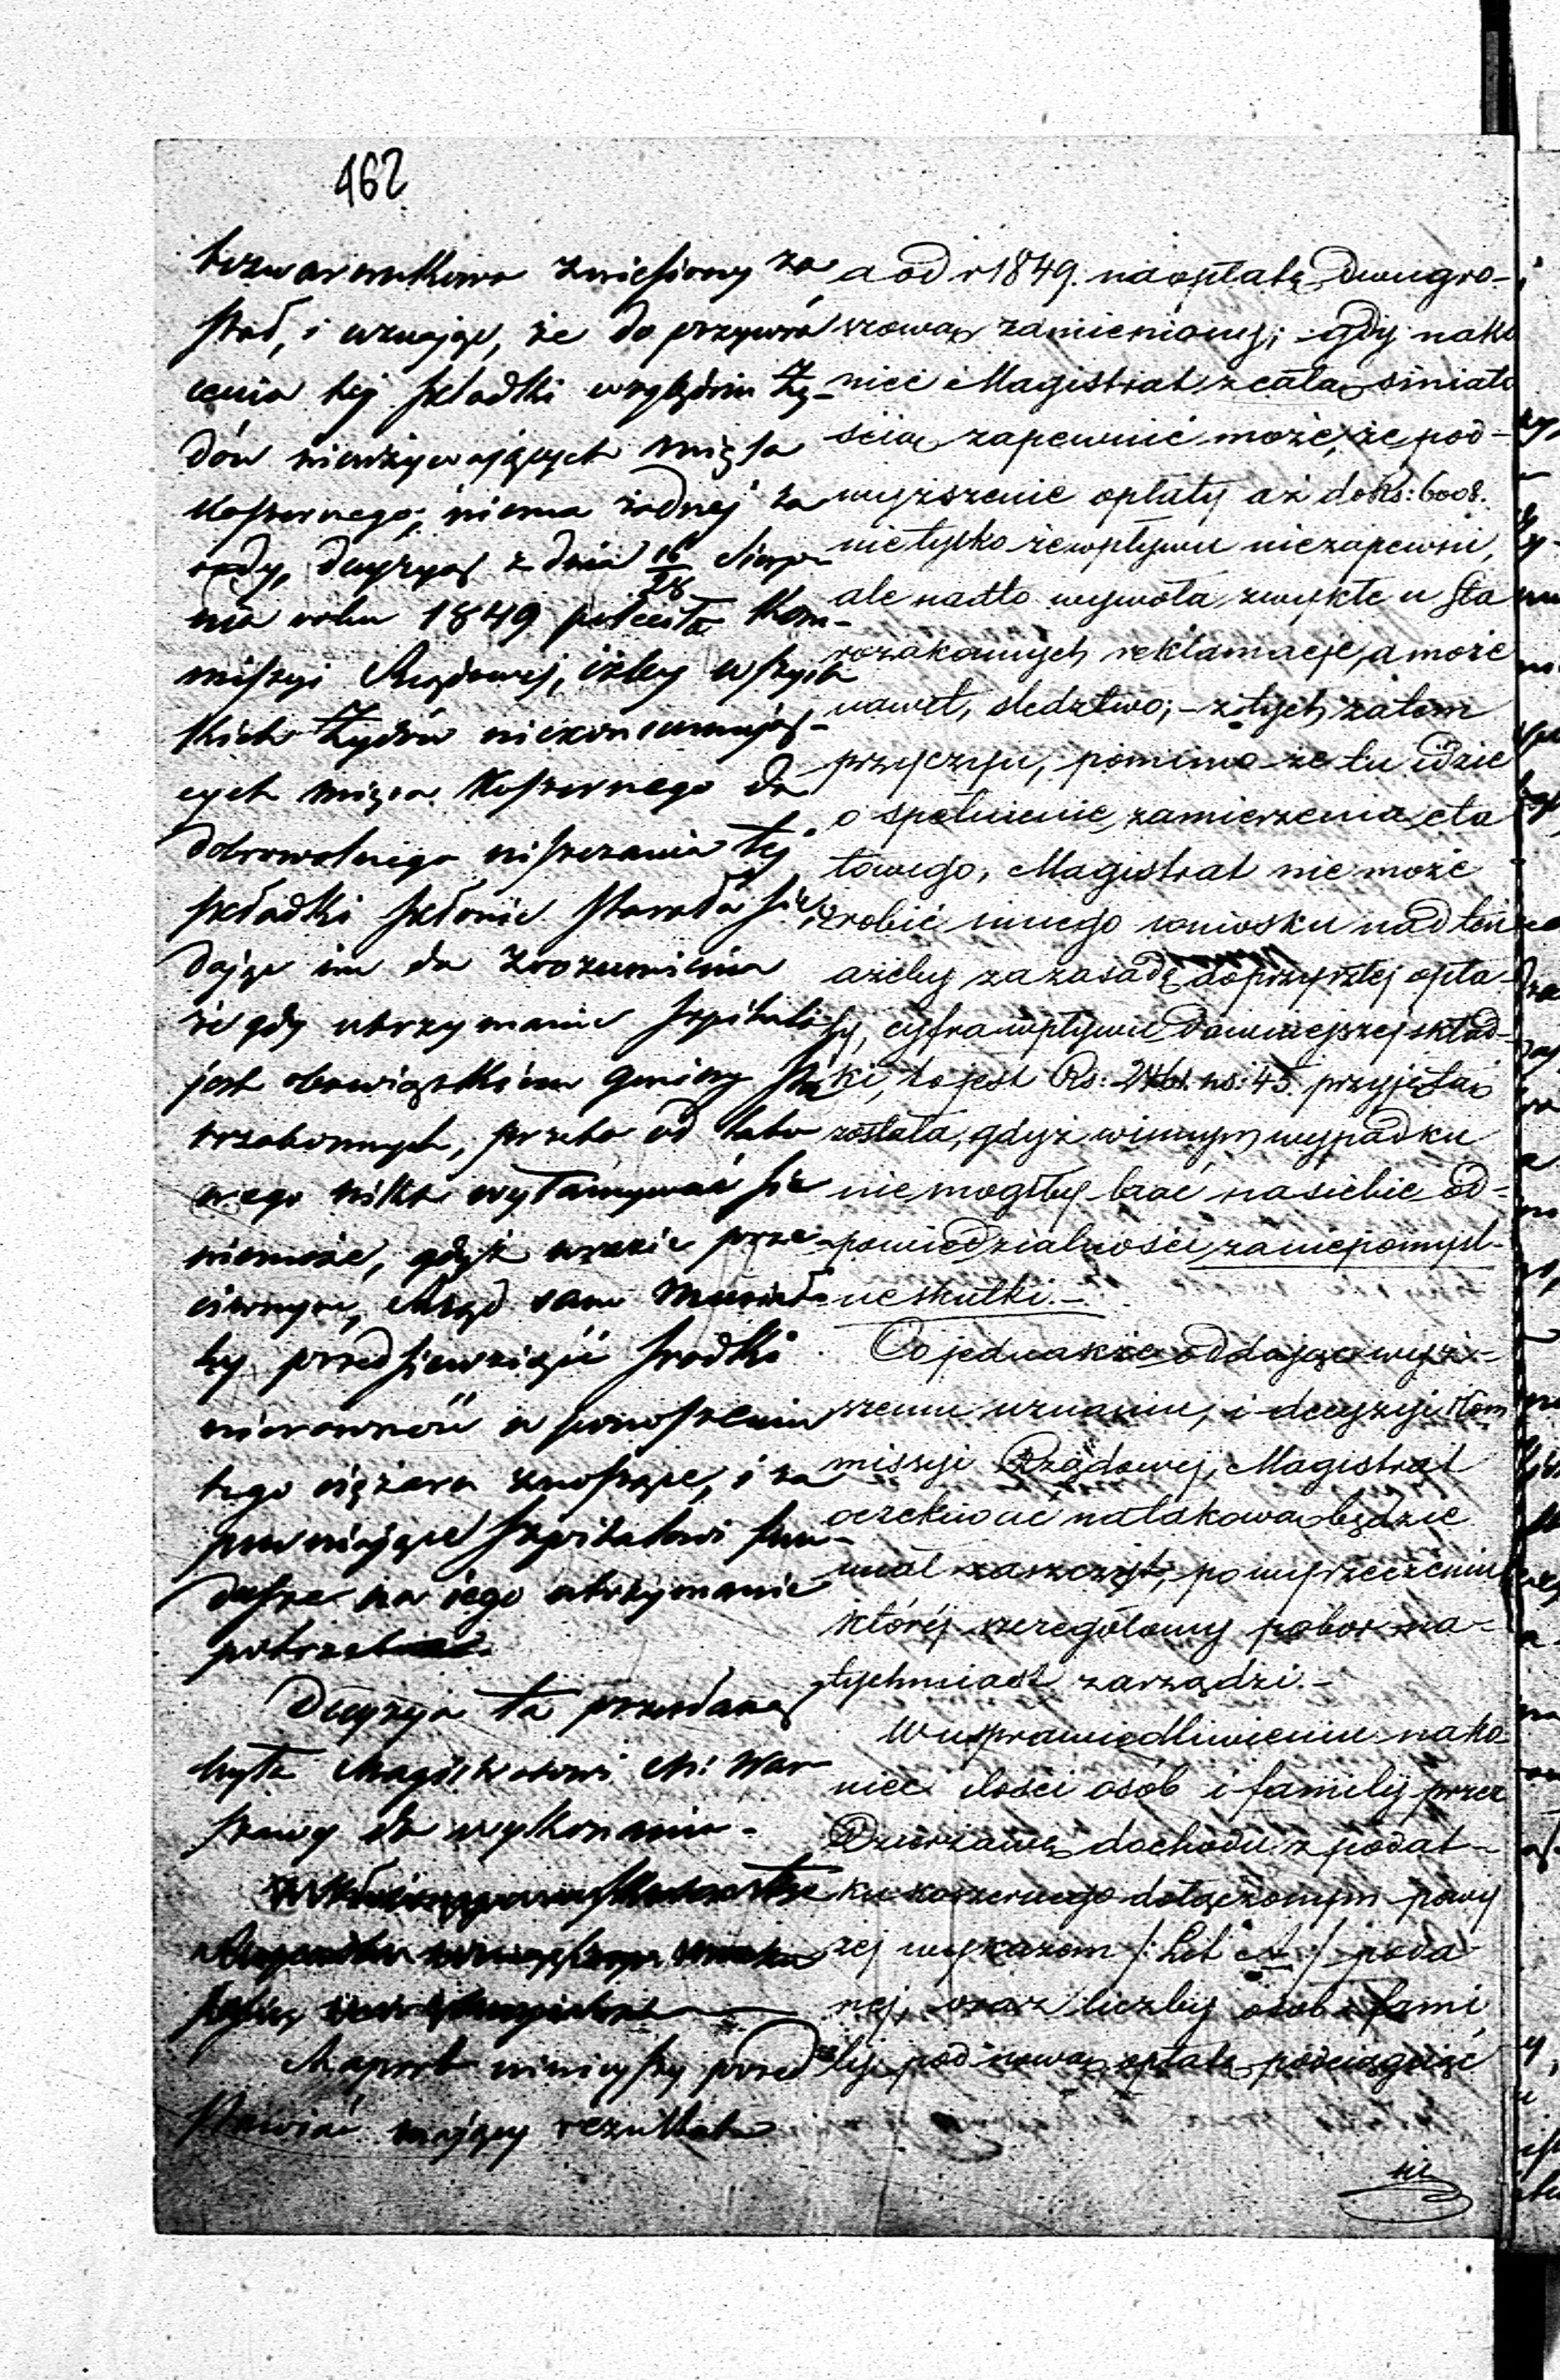 462
bezwarunkowo zniesiony zo
stał, i uznając, że do przywró
cenia tej składki względem Ży-
dów nieużywających mięsa
koszernego, niema żadnej za
sady, decyzyą z dnia 16/28 Sierp-
nia roku 1849 poleciła Kom-
missyi Rządowej, iżby wszyst
kich Żydów niekonsumują-
cych mięsa koszernego do
dobrowolnego uiszczania tej
składki skłonić starała się,
dając im do zrozumienia
że gdy utrzymanie szpitala
jest obowiązkiem Gminy Sta
rozakonnych, przeto od tako
wego nikt wyłamywać się
niemoże, gdyż w razie prze-
ciwnym, Rząd sam musiał
by przedsięwziąść środki
nierówność w ponoszeniu
tego ciężaru znoszące, i za
pewniające szpitalowi fun-
dusze na jego utrzymanie
potrzebne.
Decyzya ta przesłaną
była Magistratowi M: War
szawy do wykonania.
Raport niniejszy przed
stawiać mający rezultat
a od r 1849. na opłatę dwugro-
szową zamienionej; gdy nako
niec Magistrat z całą śmiało
ścią zapewnić może, że pod-
wyższenie opłaty aż do Rs: 6008.
nietylko że wpływu niezapewni,
ale nadto wywoła zwykłe u Sta
rozakonnych reklamacje, a może
nawet, śledztwo; – z tych zatem
przyczyn, pomimo że tu idzie
o spełnienie zamierzenia eta
towego, Magistrat nie może
zrobić innego wniosku nad ten
ażeby za zasadę do przyszłej opła-
ty, cyfra wpływu dawniejszej skład-
ki, to jest Rs: 2461. ks: 45. przyjętą
została, gdyż w innym wypadku
nie mógłby brać na siebie od-
powiedzialności za niepomyśl-
ne skutki. –
Co jednakże oddając wyż-
szemu uznaniu, i decyzyi Kom
missyi Rządowej, Magistrat
oczekiwać na takową będzie
miał zaszczyt, po wyrzeczeniu
której szczegółowy pobór na-
tychmiast zarządzi. –
W usprawiedliwieniu nako
niec ilości osób i familij przez
Dzierżawę dochodu z podat-
ku koszernego dołączonym powy
żej wykazem /: Lit A :/ poda
nej, oraz liczby osób i fami
lij pod nową opłatę pociągnąć
się